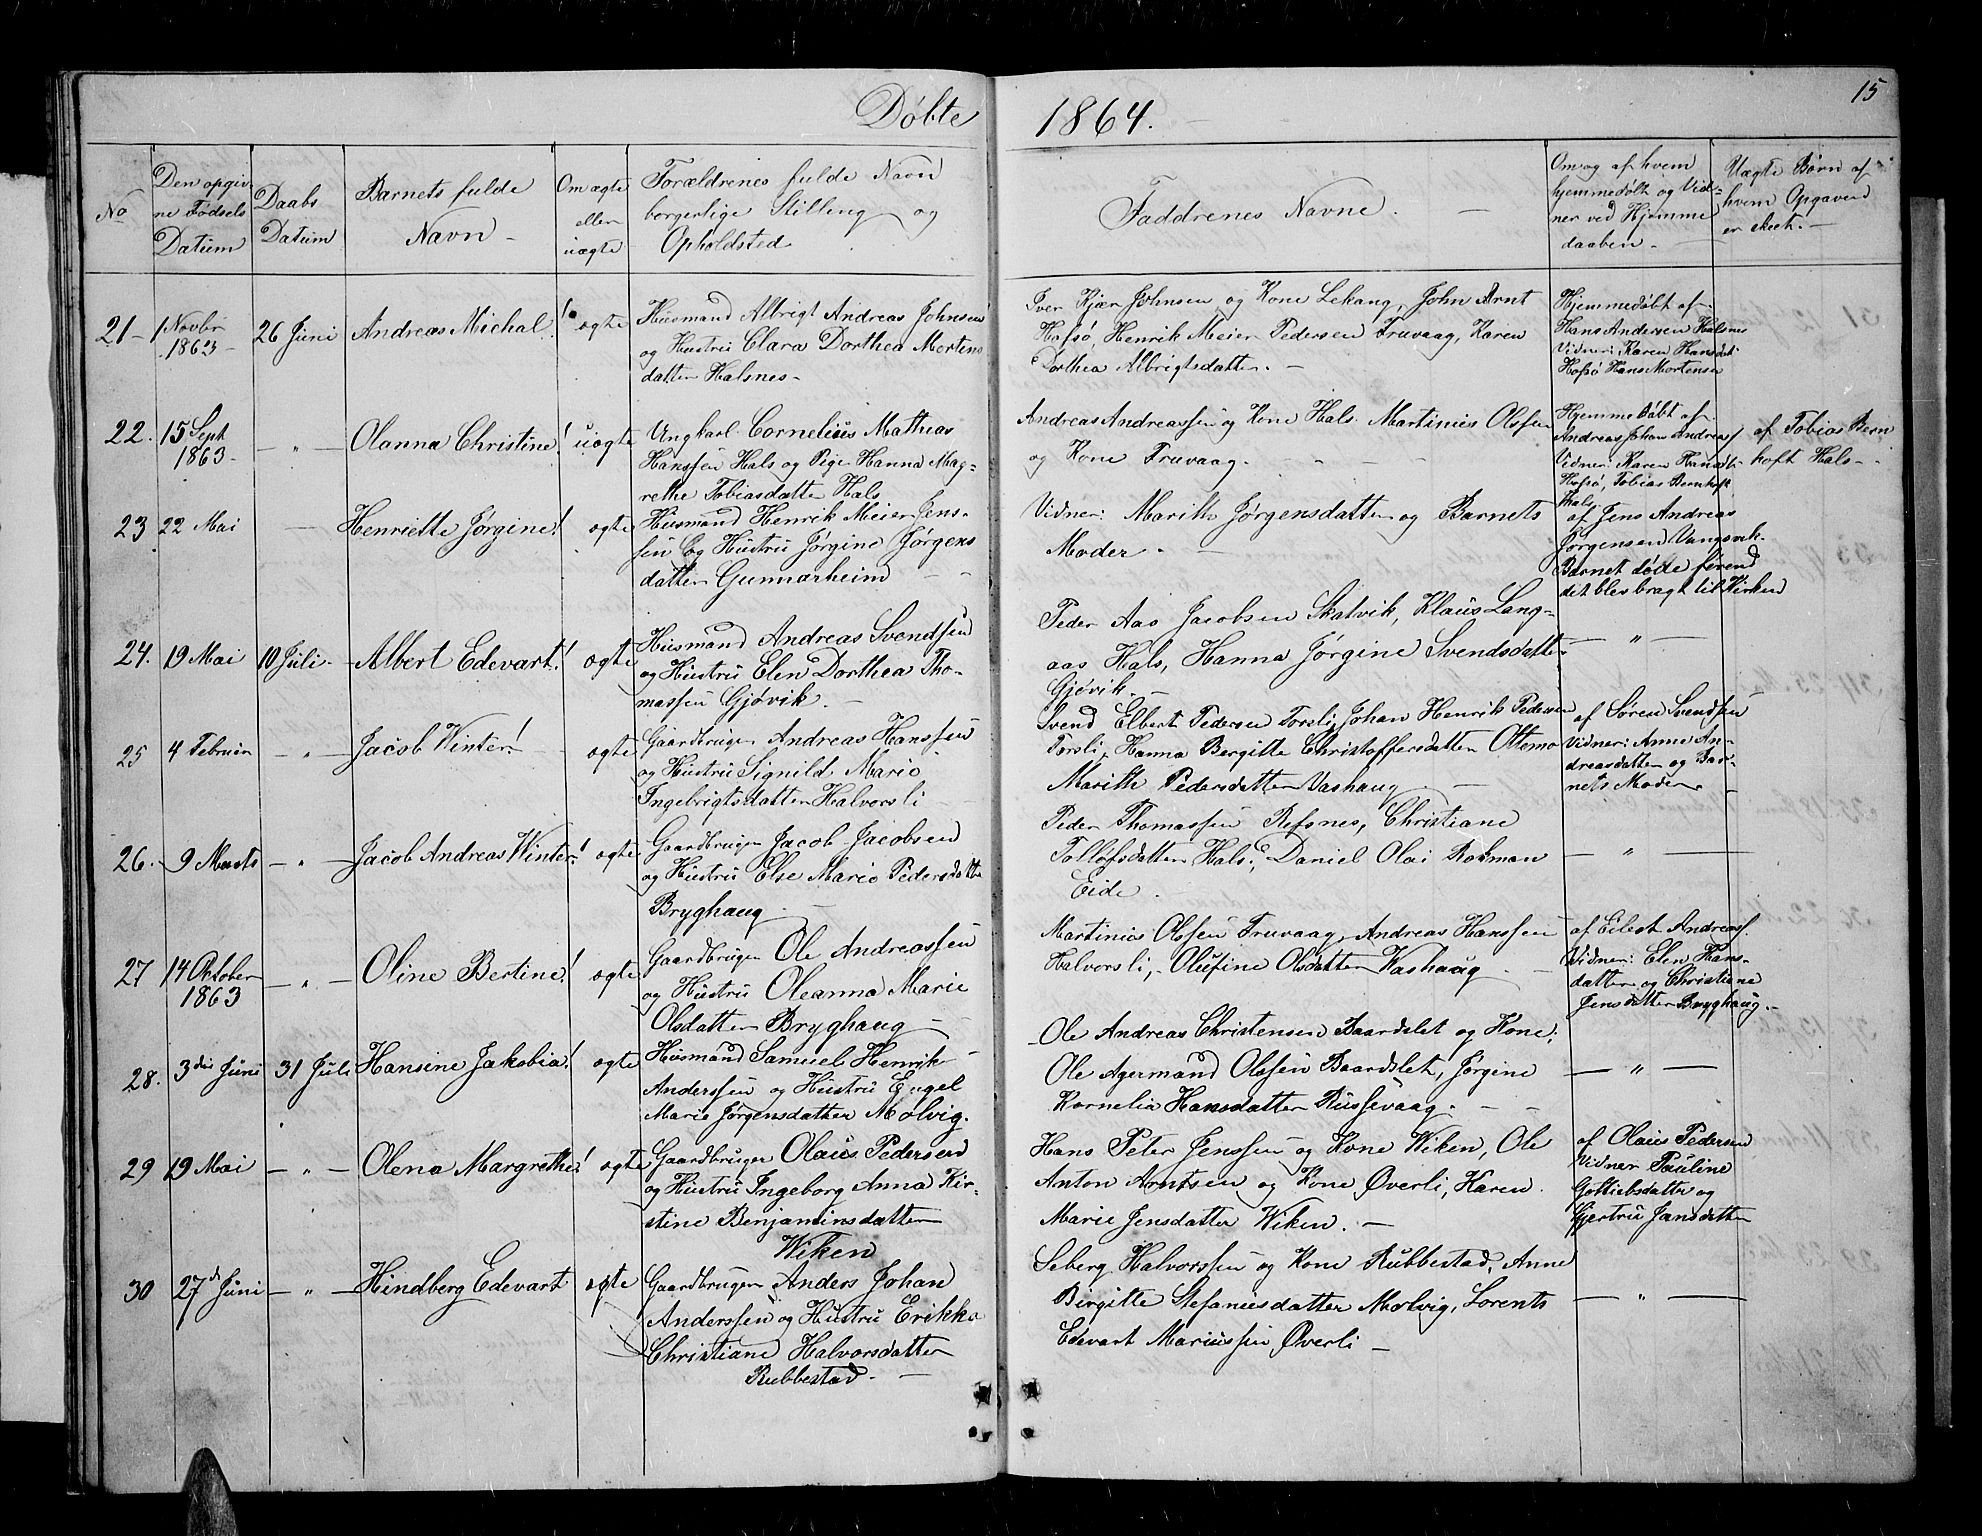 Døbte
1864.
15
No
Den opgiv
ne Fødsels
Datum
Daabs
Datum
Barnets fulde
Navn
Om ægte
eller
uægte
Forældrenes fulde Navn
borgerlige Stilling og
Opholdsted
Faddrenes Navne.
Om og af hvem
hjemmedøbt og Vid-
ner ved Hjemme
daaben.
Uægte Børn af
hvem Opgaven
er skeet.
21
1 Novbr
1863
26 Juni
Andreas Michal!
ægte
Husmand Albrigt Andreas Johnsen
og Hustru Clara Dorthea Mortens
datter Halsnes
Iver Kjær Johnsen og Kone Lekang, John Arnt
Hofsø, Henrik Meier Pedersen Truvaag, Karen
Dorthea Albrigtsdatter.
Hjemmedøbt af
Hans Andersen Halsnes
Vidner: Karen Hansdat
Hofsø Hans Mortensen
22.
15 Sept
1863
— " —
Olanna Christine!
uægte
Ungkarl Cornelius Mathias
Hanssen Hals og Pige Hanna Mag-
rethe Tobiasdatter Hals
Andreas Andreassen og Kone Hals. Martinus Olsen
og Kone Truvaag.
Hjemmedøbt af
Andreas Johan Andreass
Vidner: Karen Hansdt.
Hofsø, Tobias Bernhoft
Hals
af Tobias Bern
hoft Hals
23
22 Mai
—
Henriette Jørgine!
ægte
Husmand Henrik Meier Jens-
sen og Hustru Jørgine Jørgens
datter Gunnarheim
Vidner: Marith Jørgensdatter og Barnets
Moder.
af Jens Andreas
Jørgensen Vangsvik.
Barnet døde førend
det blev bragt til Kirken
24.
19 Mai
10 Juli
Albert Edevart!
ægte
Husmand Andreas Svendsen
og Hustru Elen Dorthea Tho-
massen Gjøvik.
Peder Aas Jacobsen Skatvik, Klaus Lang-
aas Hals, Hanna Jørgine Svendsdatter
Gjøvik.
— " —
25
4 Februar
— " —
Jacob Winter!
ægte
Gaardbruger Andreas Hanssen
og Hustru Signild Marie
Ingebrigtsdatter Halvorsli
Svend Elbert Pedersen Torsli, Johan Henrik Pedersen
Torsli, Hanna Bergitte Christoffersdatter Ottemo
Marith Pedersdatter Vashaug
af Søren Svendsen
Vidner: Anne An-
dreasdatter og Bar-
nets Moder.
26.
9 Marts
— " —
Jacob Andreas Winter!
ægte
Gaardbruger Jacob Jacobsen
og Hustru Else Marie Pedersdatter
Bryghaug
Peder Thomassen Refsnes, Christiane
Tolløfsdatter Hals, Daniel Olai Rokman
Eide.
— " —
27
14 October
1863
— " —
Oline Bertine!
ægte
Gaardbruger Ole Andreassen
og Hustru Oleanna Marie
Olsdatter Bryghaug
Martinus Olsen Truvaag, Andreas Hanssen
Halvorsli, Olufine Olsdatter Vashaug
af Eilert Andreass
Vidner: Elen Hans-
datter og Christiane
Jensdatter Bryghaug.
28.
3die Juni
31 Juli
Hansine Jakobia!
ægte
Husmand Samuel Henrik
Anderssen og Hustru Engel
Marie Jørgensdatter Molvig.
Ole Andreas Christensen Baardslet og Kone,
Ole Agermand Olssen Baardslet, Jørgine
Kornelia Hansdatter Russevaag.
— " —
29
19 Mai
— " —
Olena Margrethe!
ægte
Gaardbruger Olaus Pedersen
og Hustru Ingeborg Anna Kir-
stine Benjaminsdatter
Wiken
Hans Peter Jenssen og Kone Wiken, Ole
Anton Arntsen og Kone Øverli, Karen
Marie Jensdatter Wiken.
af Olaus Pedersen
Vidner Pauline
Gottliebsdatter og
Gjertru Jansdatter
30
27de Juni
— " —
Hindberg Edevart
ægte
Gaardbruger Anders Johan
Anderssen og Hustru Erikka
Christiane Halvorsdatter
Rubbestad.
Seberg Halvorssen og Kone Rubbestad, Anne
Birgitte Stefanusdatter Molvig, Lorents
Edevart Mariussen Øverli
— " —